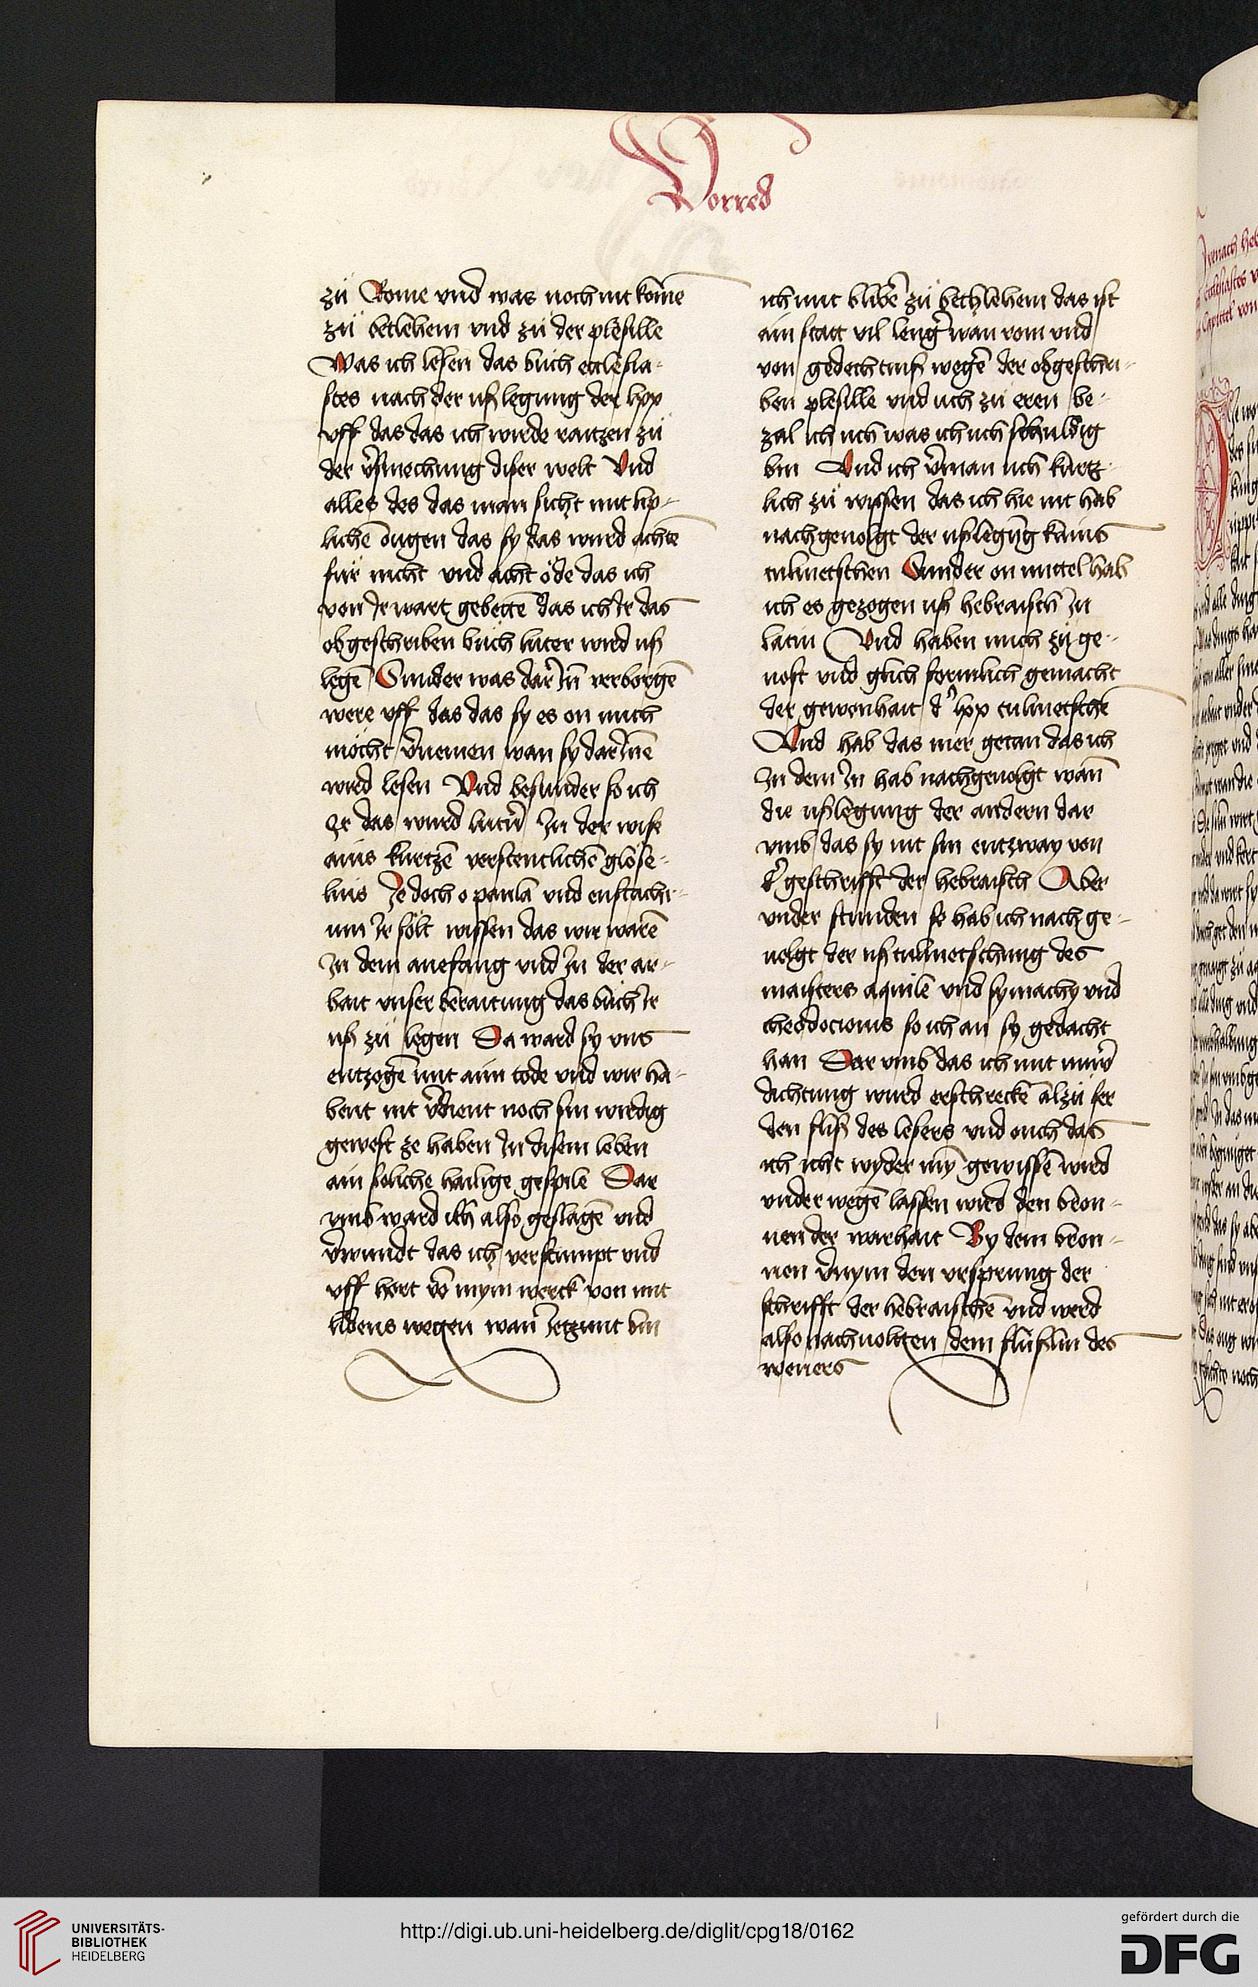 Vorred
zü Rome vnd was noch nit kom̄e
zü betlehem vnd zü der plesille
Was ich lesen das buch ecclesia-
stes nach der uslegung der lxx
vff das das ich wurde raitzen zü
der v̄smechung diser welt Vnd
alles des das man sicht mit lip-
lichē ougen das sy das wurd achtē
für nicht vnd acht öde das ich
von Ir wart gebettē das ich Ir das
obgeschriben buch luter wird us
legē Sunder was dar Iñ verborgē
were vff das das sy es on mich
möcht v̄nemen wan sy dar Innē
wird lesen Vnd besunder so ich
Ir das wurd lutr̄n In der wise
ains kurtzē verstentlichē glose-
lins Je doch o paula vnd eustachi-
um Ir sölt wissen das wir warē
In dem anefang vnd In der ar-
bait vnser beraitung das buch Ir
us zü legen Da ward sy vns
entzogē mit aim tode vnd wir ha-
bent nit v̄dient noch sin wirdig
gewest ze haben In disem leben
ain soliche hailige gespile Dar
vmb ward ich also geslagē vnd
v̄wundt das ich verstumpt vnd
vff hort vō mynn werck von mit
lidens wegen wan̄ Ietzunt bin
ich mit blibē zü bethlehem das ist
ain statt vil lenḡ wan rom vnd
von gedechtnus wegē der obgeschri-
ben plesille vnd uch zü eren be-
zal ich uch was ich uch schuldig
bin Vnd ich v̄man uch kurtz-
lich zü wissen das ich hie nit hab
nachgeuolgt der uslegūg kains
tulmetschen Sunder on mittel hab
ich es gezogen us hebraisch In
latin Vnd haben mich zü ge-
noft vnd glich formlich gemacht
der gewonhait d̄ lxx tulmetschē
Vnd hab das mer getan das ich
In dem In hab nachgeuolgt wan̄
die uslegung der andern dar
vmb das sy nit sin entzway von
d̄ geschrifft der hebraisch Aber
vnder stunden so hab ich nach ge-
uolgt der ustulmetschung des
maisters aquile vnd symachy vnd
theodocionis so ich an sy gedacht
han Dar vmb das ich nit nuw̄
dichtung wurd erschreckē alzü ser
den flis des lesers vnd ouch das
ich icht wyder mȳ gewissē wird
vnder wegē lassen wird den bron-
nen der warhait By dem bron-
nen v̄nym den vrsprung der
schrifft der hebraischē vnd werd
also nachuolgen dem flüslin des
weners
UNIVERSITÄTS-
BIBLIOTHEK
HEIDELBERG
http://digi.ub.uni-heidelberg.de/diglit/cpg18/0162
gefördert durch die
DFG